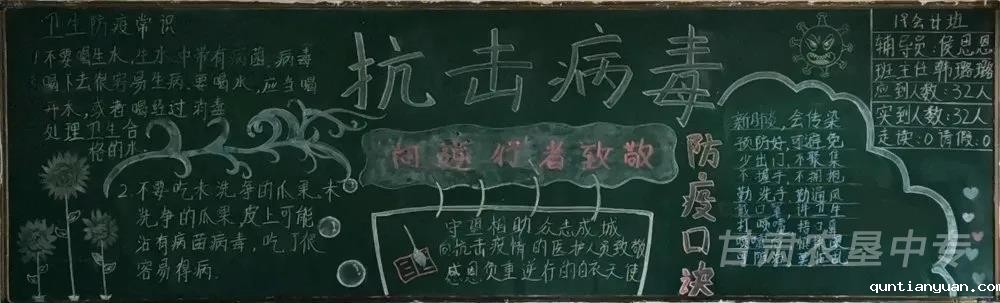 卫生防疫常识
1.不要喝生水,生水中带有病菌、病毒
喝下去很容易生病.要喝水,应当喝
开水,或者喝经过消毒
处理卫生合
格的水.
2.不要吃未洗净的瓜果,未
洗净的瓜果,皮上可能
沾有病菌病毒,吃了很
容易得病.
抗击病毒
向逆行者致敬
守望相助众志成城
向抗击疫情的医护人员致敬
感恩负重逆行的白衣天使
防疫口诀
新肺炎,会传染
预防好,可避免
少出门,不聚集
不握手,不拥抱
勤洗手,勤通风
戴口罩,讲卫生
18会计班
辅导员:侯思恩
班主任 韩璐璐
应到人数:32人
实到人数:32人
走读:0 请假:0
quntianyuan.com